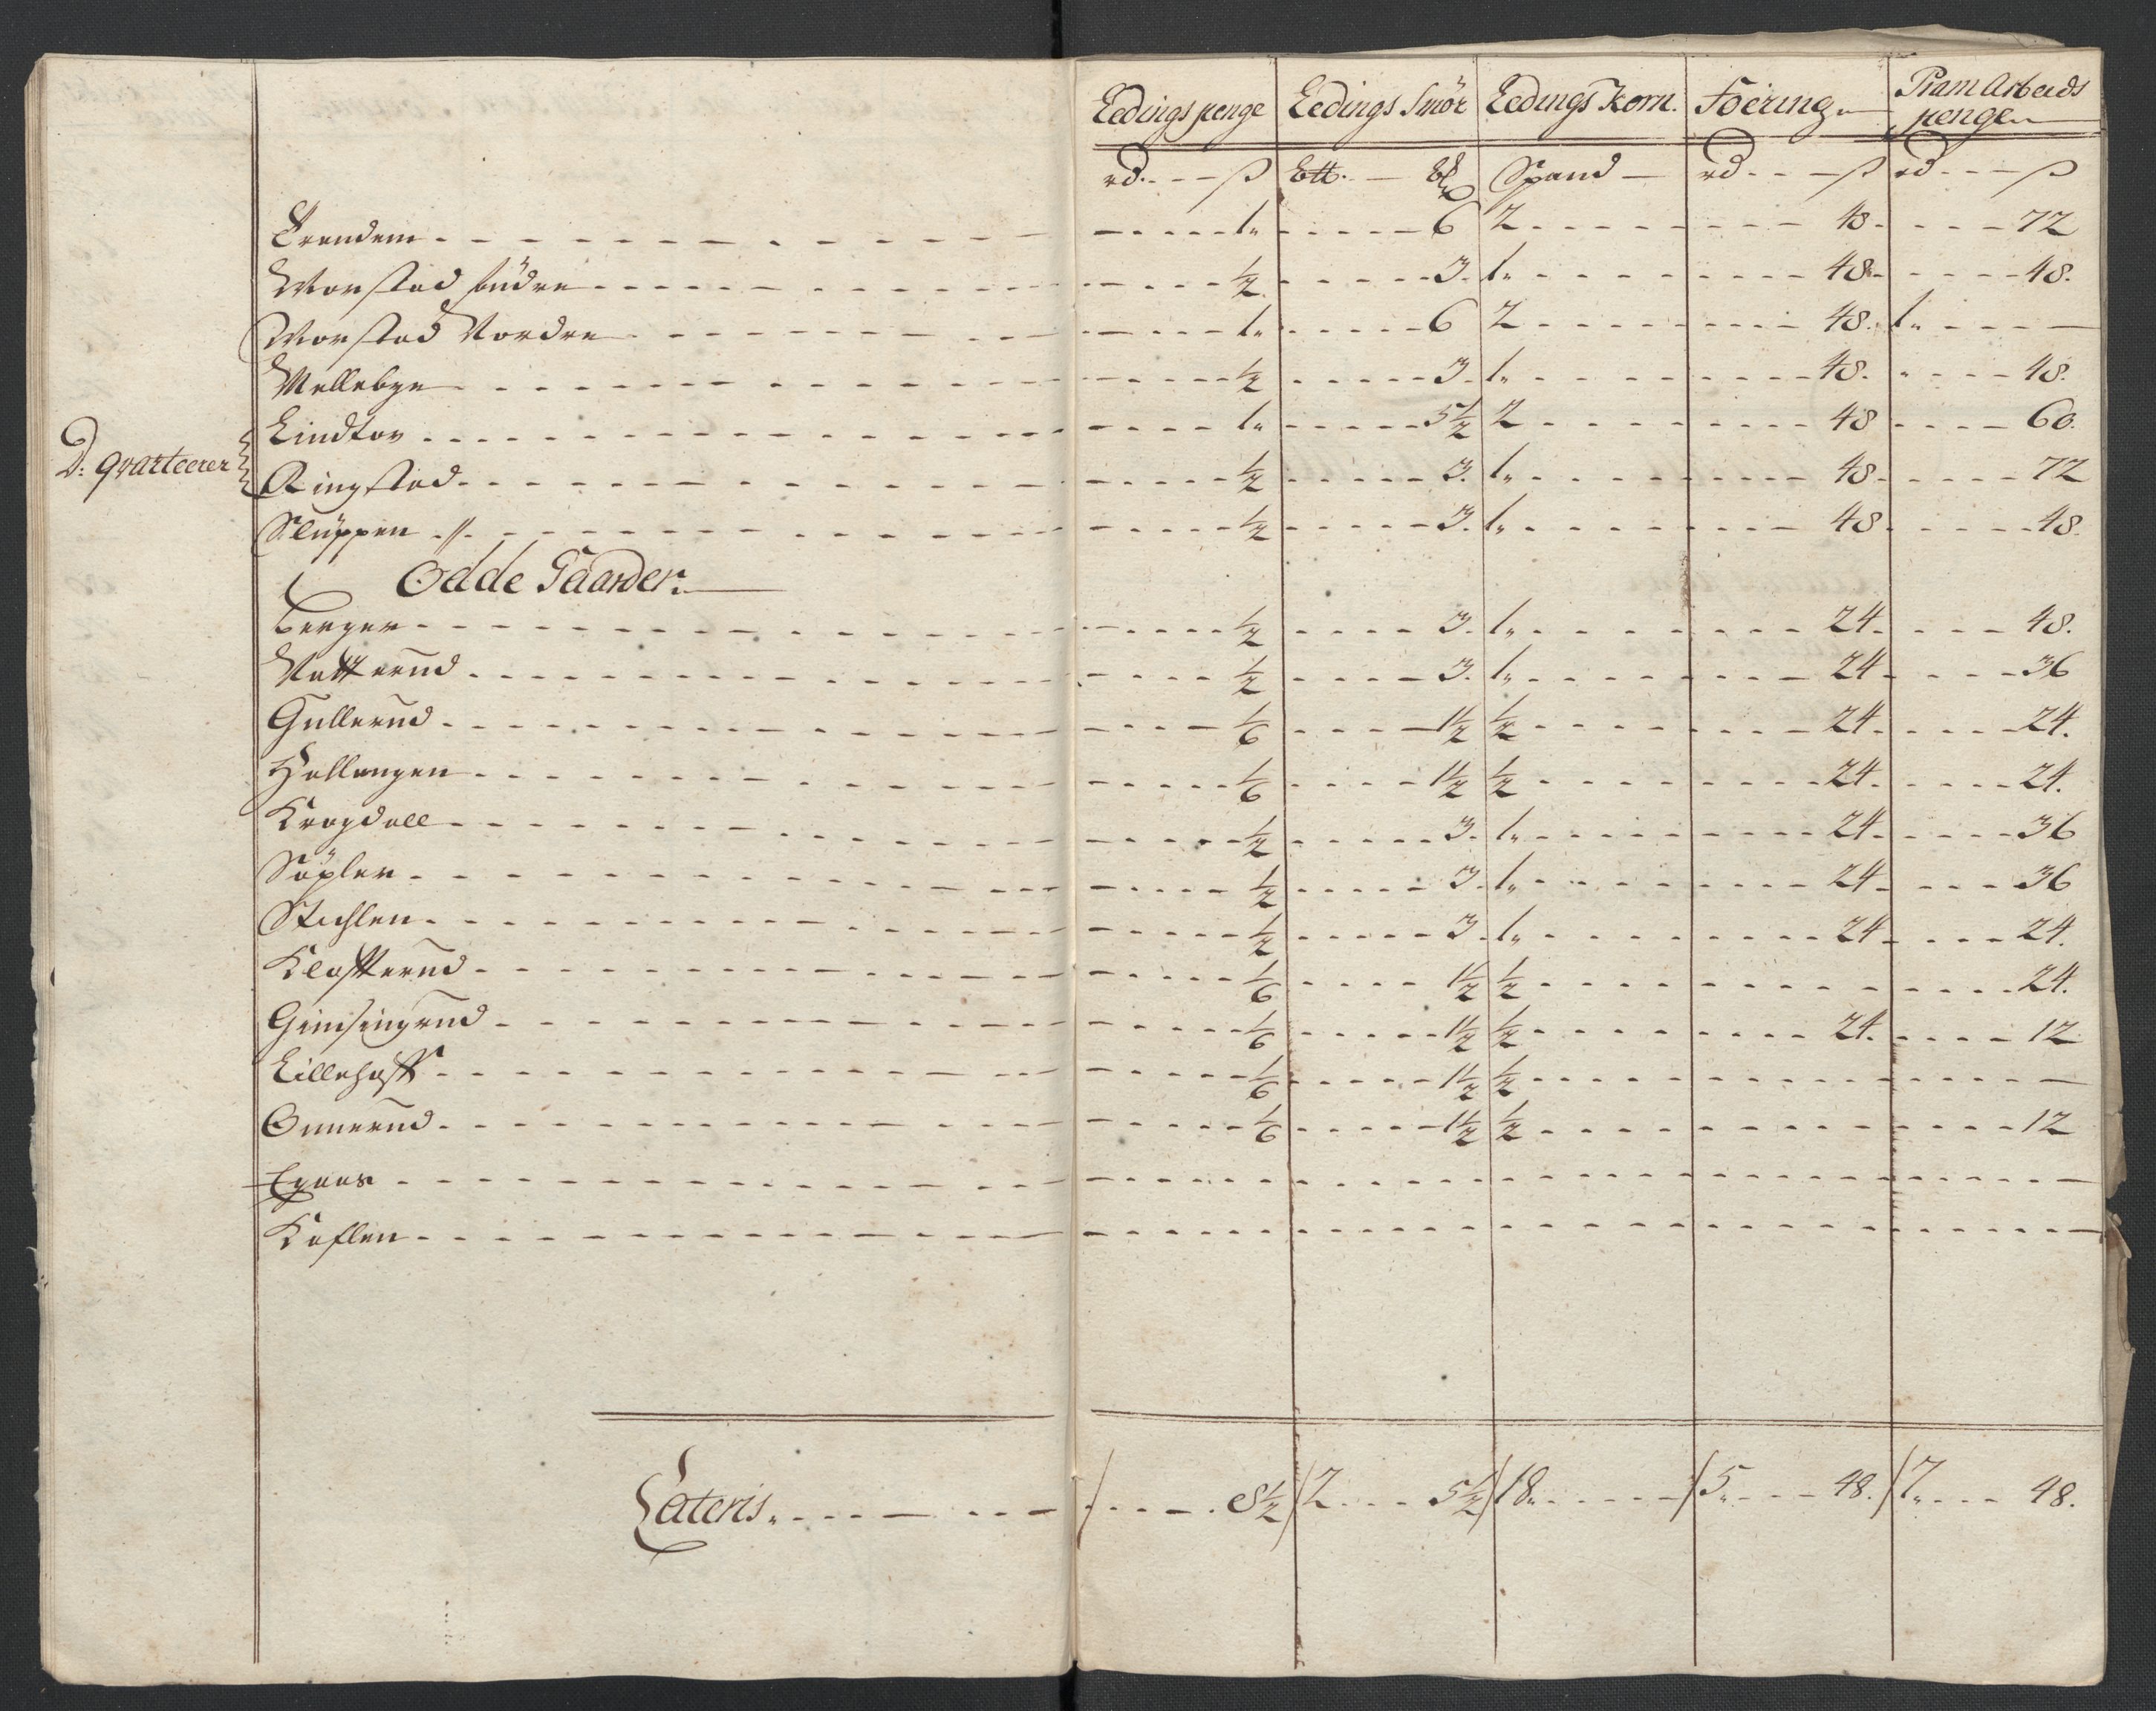 Leedings penge Leedings Smör Leedings korn. Foering Pram Arbeids penge
rd. ß Btt. Spand rd ß rd ß
Trendem 1 6 2 48. 72
Worstad Sudre ½ 3. 1 48 48.
Worstad Nordre 1 6 2 48. 1
Mellebye ½ 3. 1 48. 48.
Lindtov 1 5½ 2 48 60.
D: qvarteerer Ringstad ½ 3. 1 48. 72
Sluppen ½ 3. 1 48 48.
Odde Gaarder.
Berger ½ 3. 1 24. 48.
Natterud ½ 3. 1 24. 36
Gullerud 1/6 1½ ½ 24. 24.
Hallangen 1/6 1½ ½ 24. 24.
Krogdall ½ 3. 1 24. 36
Söpler ½ 3. 1 24 36
Stichlen ½ 3. 1 24. 24.
Klosterud 1/6 1½ ½ 24.
Gimsingrud 1/6 1½ ½ 24. 12
Lillehoff 1/6 1½ ½
Onnerud 1/6 1½ ½ 12
Egnes
Kaflen
Lateris 8½ 2 5½ 18 5 48. 7 48.